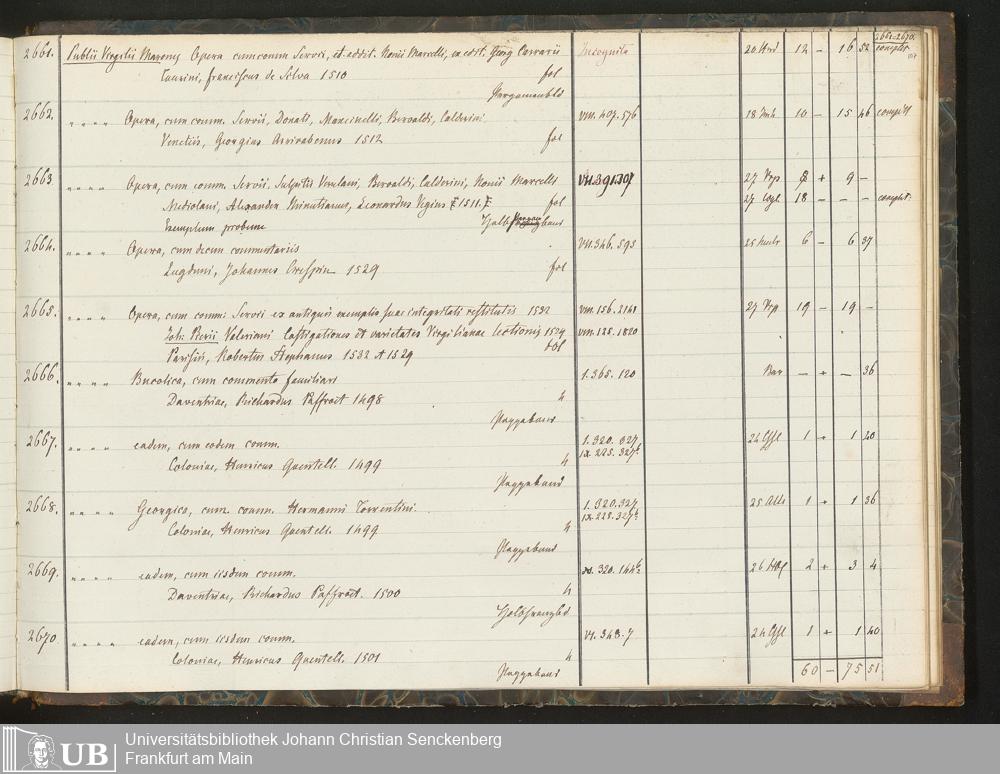 2661-2670.
2661. Publii Virgilii Maronis Opera cum comm Servii, et addit. Nonii Marcelli, ex edit. Incognita 20 12 - 16 52 complet.
Taurini, Franciscus de Silva 1510 fol
Pergamentbd
2662. " " " " Opera, cum comm. Servii, Donati, Mancinelli, Beroaldi, Calderini VIII. 407. 576 18 10 - 15 46 complet
Venetiis, Georgius Arrivabenus 1512 fol
2663. " " " " Opera, cum comm. Servii, Sulpitii Verulani, Beroaldi, Calderini, Nonii Marcelli VII. 391. 107 27 + 9 -
Mediolani, Alexander Minutianus, Leonardus Vegius 1511. fol 27 18 - - - complet.
Exemplum probum
2664. " " " " Opera, cum decem commentariis VII. 346. 595 25 6 - 6 37
Lugduni, Johannes Crespin 1529 fol
2665. " " " " Opera, cum comm: Servii ex antiquis exemplis suae integritati restitutis 1532 VIII. 156. 2161 27 19 - 19 -
Joh: Pierii Valeriani Castigationes et varietates Virgilianae lectionis 1529 VIII. 125. 1820
Parisiis, Robertus Stephanus 1532 et 1529 fol
2666. " " " " Bucolica, cum commento familiari 1. 365. 120 Bar - + - 36
Daventriae, Richardus Paffroet 1498 4
Pappeband
2667. " " " " eadem, cum eodem comm. 1. 320. 327
Coloniae, Henricus Quentell. 1499 IX. 225. 327b 24 1 + 1 40
4
Pappeband
2668. " " " " Georgica, cum comm. Hermanni Torrentini. 1. 320. 327 25 1 + 1 36
Coloniae, Henricus Quentell. 1499 IX. 225. 327b
4
Pappeband
2669. " " " " eadem, cum iisdem comm. 320. 144b 26 2 + 3 4
Daventriae, Richardus Paffroet. 1500 4
Halbfranzbd
2670 " " " " eadem, cum iisdem comm. VI. 348. 7 24 1 + 1 40
Coloniae, Henricus Quentell. 1501 4
Pappeband 60 - 75 51
UB
Universitätsbibliothek Johann Christian Senckenberg
Frankfurt am Main